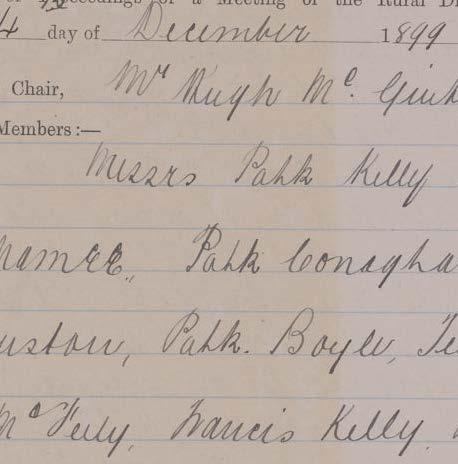 Proceedings of a Meeting of the Rural Di
4th day of December 1899
Chair, Mr Hugh Mc. Ginl
Members:—
Messrs Patk Kelly
namee, Patk Conagha
uston, Patk. Boyle, Te
McFeely, Francis Kelly,